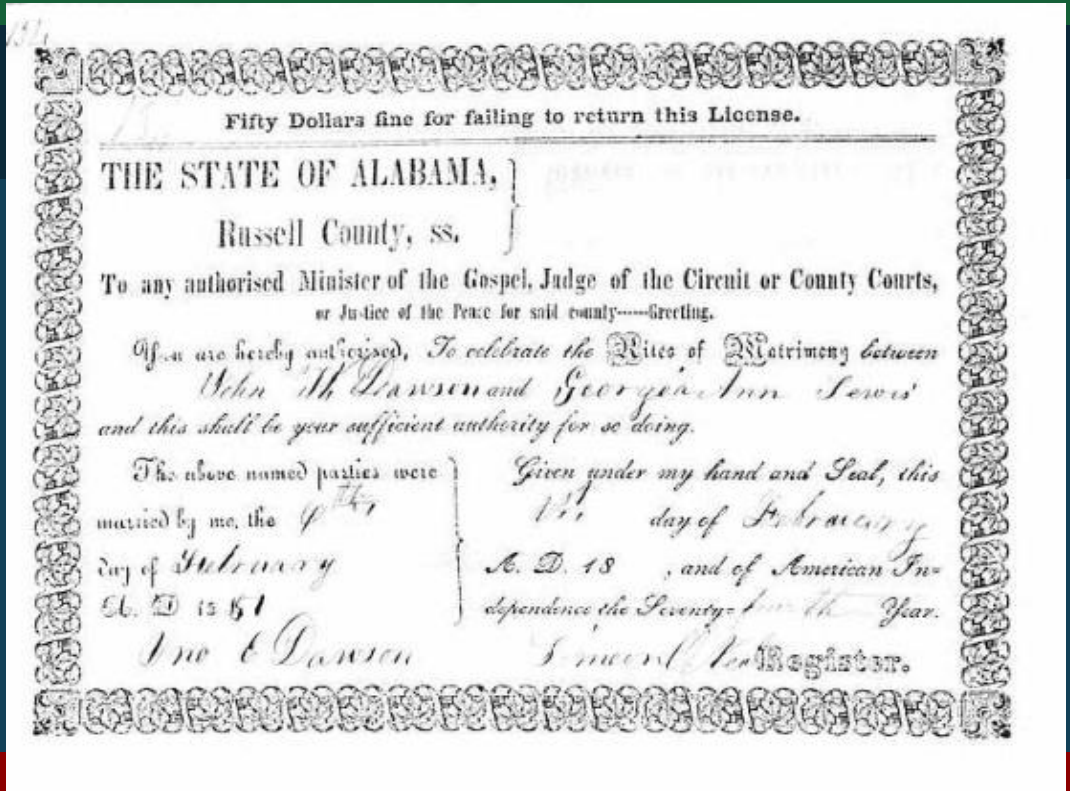 Fifty Dollars fine for failing to return this License.
THE STATE OF ALABAMA,
Russell County, ss.
To any authorised Minister of the Gospel, Judge of the Circuit or County Courts,
or Justice of the Peace for said county-----Greeting.
You are hereby authorised, To celebrate the Rites of Matrimony between
John Th Dawson and Georgea Ann Lewis
and this shall be your sufficient authority for so doing.
The above named parties were
married by me, the
day of February
A. D 1851
Jno E Dawson
Given under my hand and Seal, this
day of February
A. D. 18 , and of American In=
dependence the Seventy= Year.
Register.